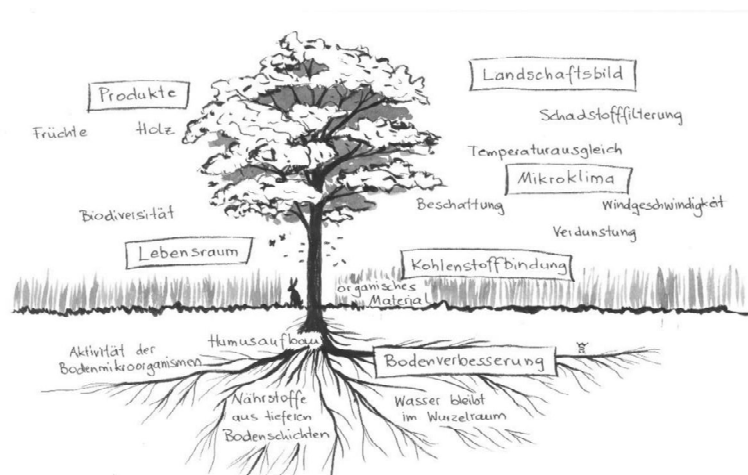 Landschaftsbild
Produkte
Schadstofffilterung
Früchte
Holz
Temperaturausgleich
Mikroklima
Beschattung
Windgeschwindigkeit
Biodiversität
Verdunstung
Lebensraum
Kohlenstoffbindung
organisches
Material
Humusaufbau
Aktivität der
Bodenmikroorganismen
Bodenverbesserung
Nährstoffe
aus tieferen
Bodenschichten
Wasser bleibt
im Wurzelraum